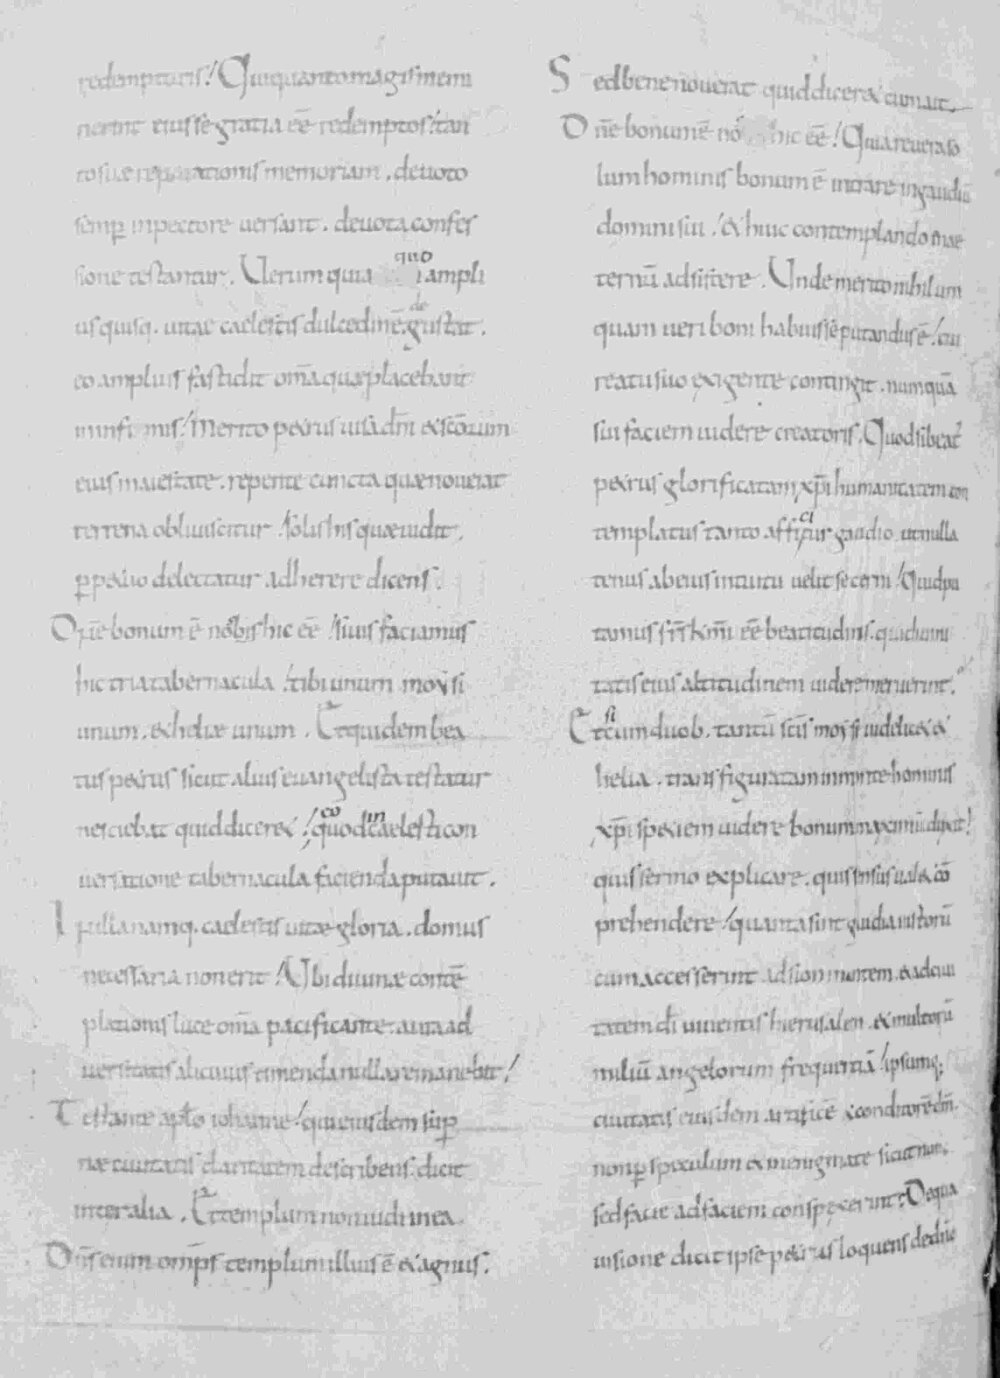 redempturis! Qui quanto magis memi
nerint eius se gratia eē redemptos! tan
to suae reparationis memoriam. deuoto
semp inpectore uersant. deuota confes
sione testantur. Uerum quia quo ampli
us quisq. uitae caelestis dulcedinē. degustat.
eo amplius fastidit om̄a quae placebant
in infimis! Merito petrus uisa dn̄i & sc̄orum
eius maiestate. repente cuncta quae nouerat
terrena obliuiscitur! solis his quae uidit.
ppetuo delectatur. adherere dicens.
Dn̄e bonum ē nobis hic eē! si uis faciamus
hic tria tabernacula! tibi unum moysi
unum. & heliae unum. Et quidem bea
tus petrus sicut alius euangelista testatur
nesciebat quid diceret! eo quod in caelesti con
uersatione tabernacula facienda putauit.
In illa namq. caelestis uitae gloria. domus
necessaria non erit! Ubi diuinae contē
plationis luce om̄a pacificante. aura ad
uersitatis alicuius timenda nulla remanebit!
Testante aplo iohanne! qui eiusdem sup
nae ciuitatis claritatem describens. dicit
inter alia. Et templum non uidi in ea
Dn̄s enim omps templum illius ē & agnus.
Sed bene nouerat quid diceret cum ait.
Dn̄e bonum ē nob hic eē! Quia re uera so
lum hominis bonum ē intrare in gaudiū
domini sui! & huic contemplando in ae
ternū adsistere. Unde merito nihil um
quam ueri boni habuisse putandus ē! cui
reatu suo exigente contingit. numquā
sui faciem uidere creatoris. Quod si beat'
petrus glorificatam xp̄i humanitatem con
templatus tanto afficitur gaudio ut nulla
tenus ab eius intuitu uelit secerni! Quid pu
tamus fr̄s km̄i eē beatitudinis. qui diuini
tatis eius altitudinem uidere meruerint.
Et si cum duob. tantū sc̄is moysi uidelicet &
helia. transfiguratam in monte hominis
xp̄i speciem uidere bonum maximū dixit!
quis sermo explicare. quis sensus ualet cō
prehendere! quanta sint gaudia iustorū
cum accesserint ad sion montem. & ad ciui
tatem dī uiuentis hierusalem. & multorū
miliū angelorum frequentiā! ipsumq;
ciuitatis eiusdem artificē & conditorē dm̄.
non p speculum & in enigmate sicut nunc.
sed facie ad faciem conspexerint? De qua
uisione dicit ipse petrus loquens de